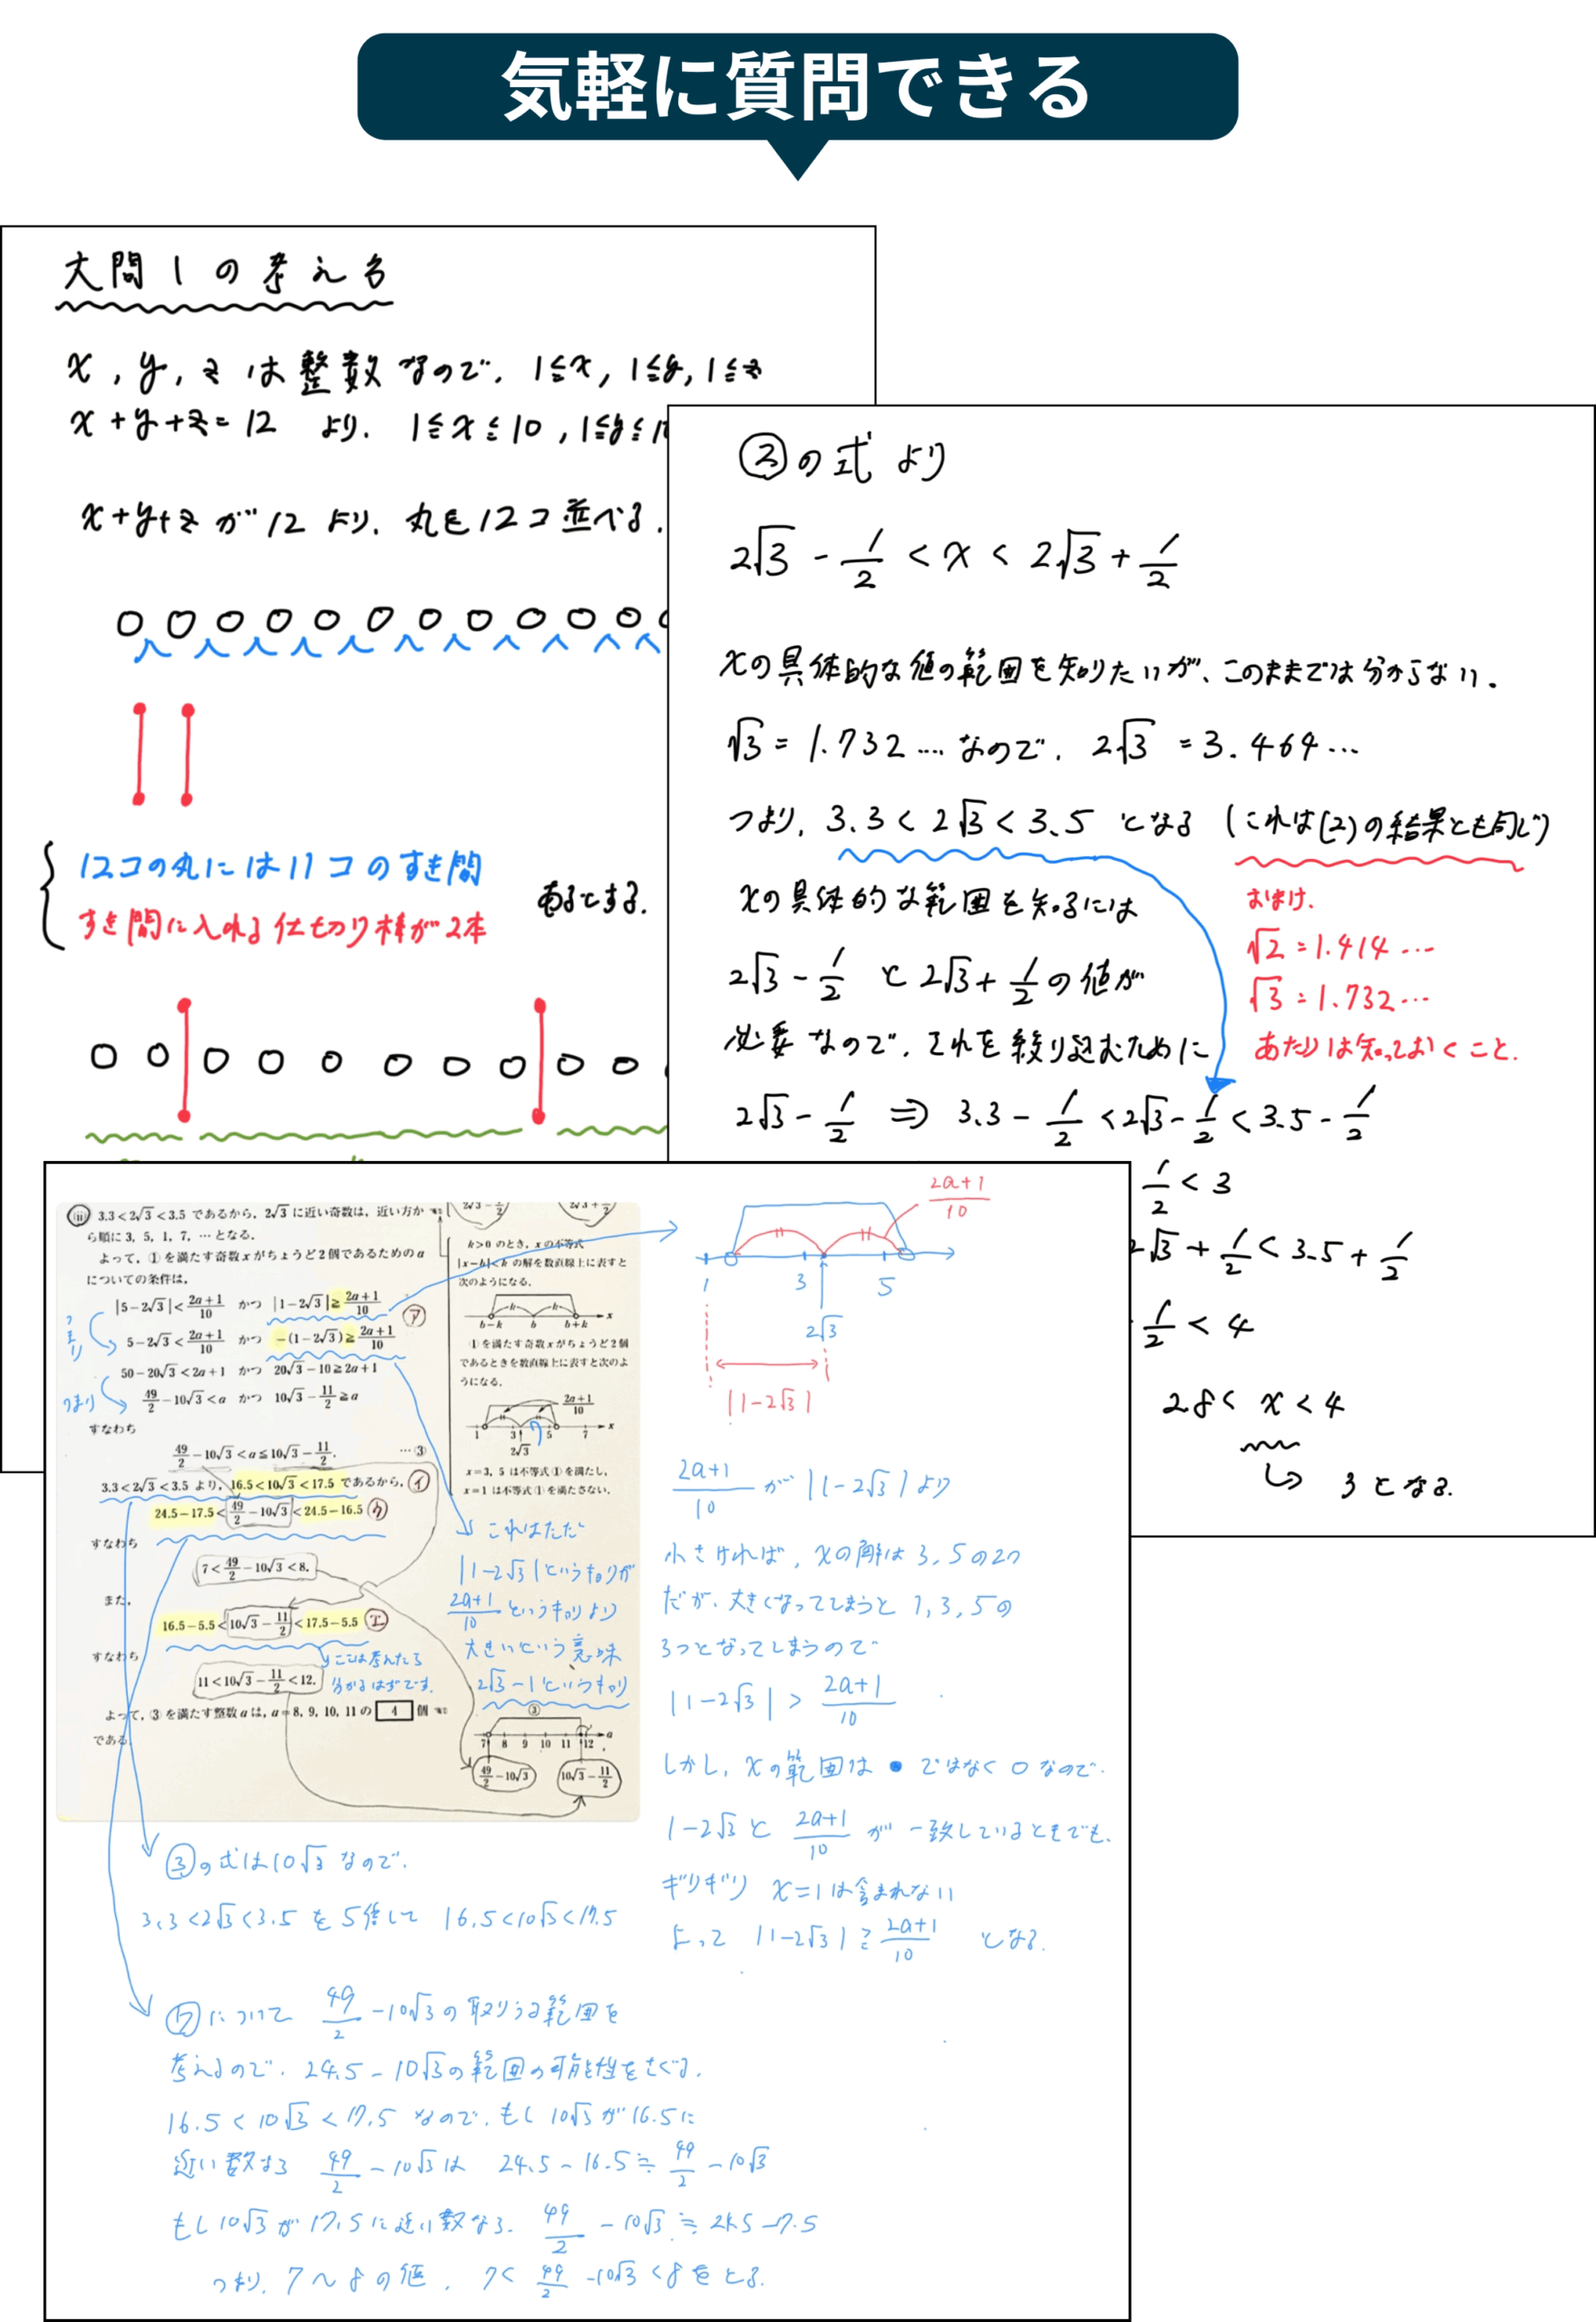 気軽に質問できる
大問1の考え方
x, y, z は整数なので、1≦x, 1≦y, 1≦z
x+y+z=12 より、1≦x≦10, 1≦y≦1
x+y+z が12より、丸を12コ並べる.
12コの丸には11コのすき間
すき間に入れる仕切り棒が2本
あるとする.
②の式より
2√3 - 1/2 < x < 2√3 + 1/2
xの具体的な値の範囲を知りたいが、このままでは分からない.
√3 = 1.732…. なので、2√3 = 3.464…
つまり、3.3 < 2√3 < 3.5 となる (これは(2)の結果とも同じ)
xの具体的な範囲を知るには
2√3 - 1/2 と 2√3 + 1/2 の値が
必要なので、それを絞り込むために
おまけ.
√2 = 1.414…
√3 = 1.732…
あたりは知っておくこと.
2√3 - 1/2 ⇒ 3.3 - 1/2 < 2√3 - 1/2 < 3.5 - 1/2
1/2 < 3
2√3 + 1/2 < 3.5 + 1/2
1/2 < 4
2.8 < x < 4
↳ 3となる.
(ii) 3.3<2√3<3.5 であるから, 2√3 に近い奇数は, 近い方か
ら順に 3, 5, 1, 7, … となる.
よって, ①を満たす奇数 x がちょうど2個であるための a
についての条件は,
|5-2√3|<(2a+1)/10 かつ |1-2√3|≧(2a+1)/10 ㋐
つまり
5-2√3<(2a+1)/10 かつ -(1-2√3)≧(2a+1)/10
50-20√3<2a+1 かつ 20√3-10≧2a+1
つまり
49/2-10√3<a かつ 10√3-11/2≧a
すなわち
49/2-10√3<a≦10√3-11/2. …③
3.3<2√3<3.5 より, 16.5<10√3<17.5 であるから, ㋑
24.5-17.5<49/2-10√3<24.5-16.5 ㋒
すなわち
7<49/2-10√3<8.
また,
16.5-5.5<10√3-11/2<17.5-5.5 ㋓
すなわち
ここは考えたら
分かるはずです.
11<10√3-11/2<12.
よって, ③を満たす整数 a は, a=8, 9, 10, 11 の 4 個
である.
2√3-1/2 2√3+1/2
k>0 のとき, x の不等式
|x-b|<k の解を数直線上に表すと
次のようになる.
k k
b-k b b+k x
①を満たす奇数 x がちょうど2個
であるときを数直線上に表すと次のよ
うになる.
(2a+1)/10
1 3 5 7 x
2√3
x=3, 5 は不等式①を満たし,
x=1 は不等式①を満たさない.
これはただ
|1-2√3|というキョリが
(2a+1)/10 というキョリより
大きいという意味
2√3-1というキョリ
③
7 8 9 10 11 12 a
49/2-10√3 10√3-11/2
(2a+1)/10
1 3 5
2√3
|1-2√3|
(2a+1)/10 が |1-2√3| より
小さければ、xの解は3,5の2つ
だが、大きくなってしまうと 1,3,5の
3つとなってしまうので
|1-2√3| > (2a+1)/10
しかし、xの範囲は ● ではなく ○ なので、
1-2√3 と (2a+1)/10 が 一致しているときでも、
ギリギリ x=1は含まれない
よって |1-2√3| ≧ (2a+1)/10 となる.
③の式は10√3なので、
3.3<2√3<3.5 を 5倍して 16.5<10√3<17.5
㋒について 49/2 - 10√3 の取りうる範囲を
考えるので、24.5 - 10√3の範囲の可能性をさぐる.
16.5 < 10√3 < 17.5 なので、もし 10√3 が 16.5に
近い数なら 49/2 - 10√3 は 24.5 - 16.5 ≒ 49/2 - 10√3
もし 10√3 が 17.5 に近い数なら、49/2 - 10√3 ≒ 24.5 - 17.5
つまり、7〜8の値、7 < 49/2 - 10√3 < 8 をとる.